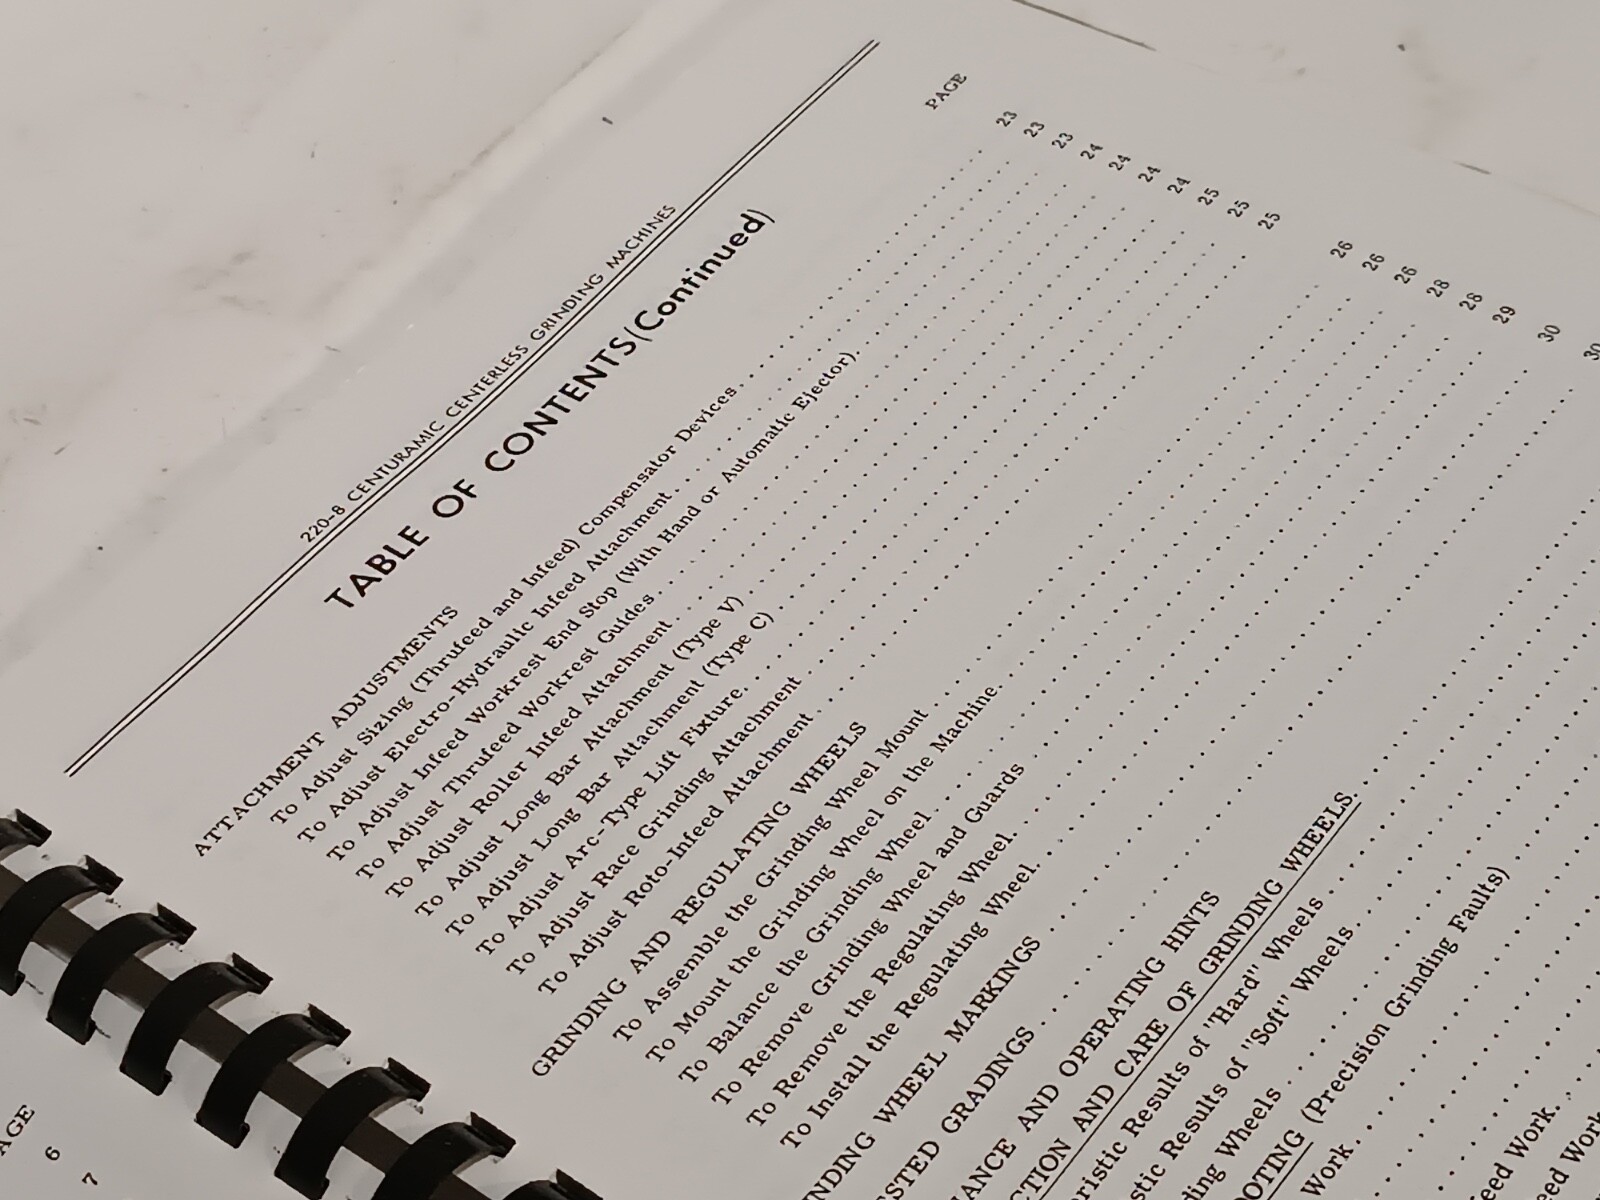 220-8 CENTURAMIC CENTERLESS GRINDING MACHINES
TABLE OF CONTENTS (Continued)
PAGE
ATTACHMENT ADJUSTMENTS
To Adjust Sizing (Thrufeed and Infeed) Compensator Devices 23
To Adjust Electro-Hydraulic Infeed Attachment 23
To Adjust Infeed Workrest End Stop (With Hand or Automatic Ejector) 23
To Adjust Thrufeed Workrest Guides 24
To Adjust Roller Infeed Attachment 24
To Adjust Long Bar Attachment (Type V) 24
To Adjust Long Bar Attachment (Type C) 24
To Adjust Arc-Type Lift Fixture 25
To Adjust Race Grinding Attachment 25
To Adjust Roto-Infeed Attachment 25
GRINDING AND REGULATING WHEELS
To Assemble the Grinding Wheel Mount 26
To Mount the Grinding Wheel on the Machine 26
To Balance the Grinding Wheel 26
To Remove Grinding Wheel and Guards 28
To Remove the Regulating Wheel 28
To Install the Regulating Wheel 29
WHEEL MARKINGS 30
GRADINGS 30
AND OPERATING HINTS
AND CARE OF GRINDING WHEELS
Results of "Hard" Wheels
Results of "Soft" Wheels
Wheels
(Precision Grinding Faults)
Work
Work
Work
6
7